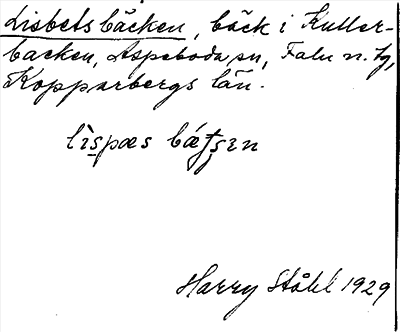 Lisbetsbäcken, bäck i Kuller-
backen, Aspeboda sn, Falu n. tg,
Kopparbergs län.
lìspæs bǽt̯s̨ɛn
Harry Ståhl 1929